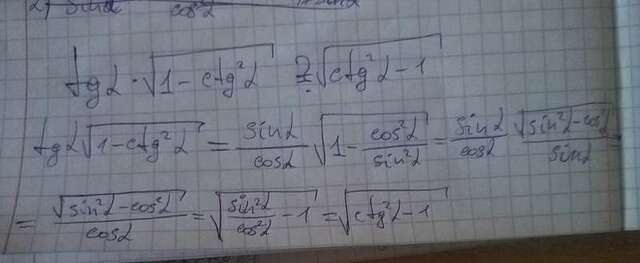 2) sinα cos²α
tgα · √(1 − ctg²α) ≟ √(ctg²α − 1)
tgα √(1 − ctg²α) = sinα/cosα √(1 − cos²α/sin²α) = sinα/cosα √(sin²α − cos²α)/sinα =
= √(sin²α − cos²α)/cosα = √(sin²α/cos²α − 1) = √(ctg²α − 1)